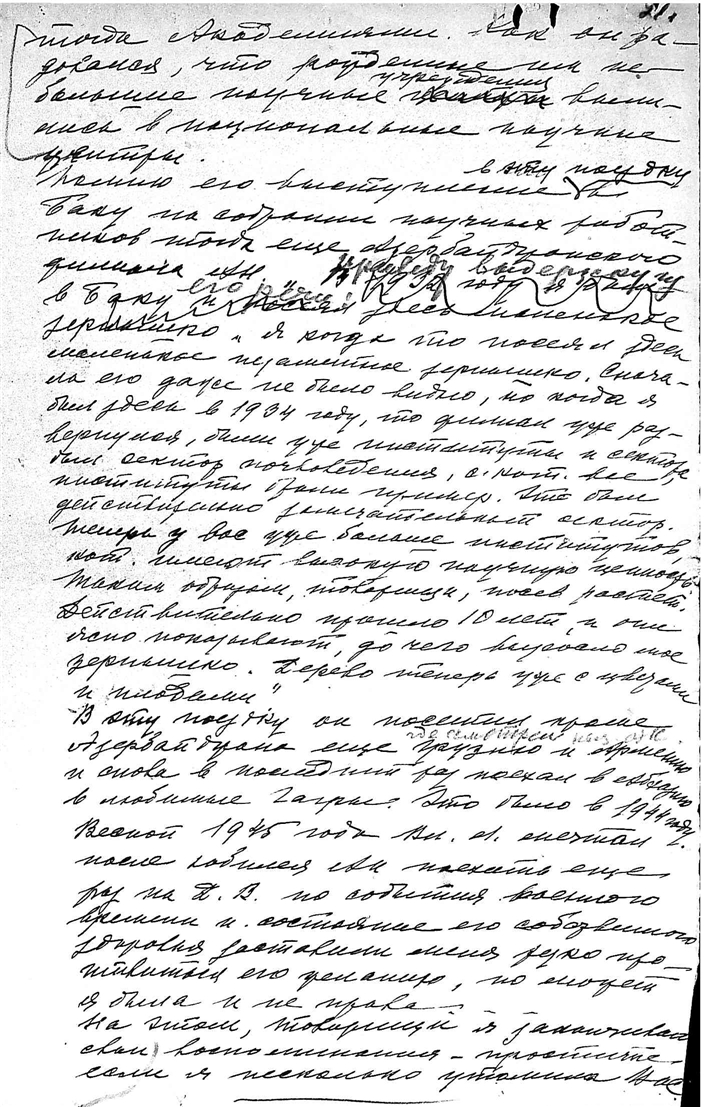 21.
тогда Академиями. Как он ра-
довался, что рожденные им не-
большие научные учреждения выли-
лись в национальные научные
центры.
в эту поездку
Помню его выступление в
Баку на собрании научных работ-
ников тогда еще Азербайджанского
филиала АН приведу выдержку из
его речи
в Баку и посеял здесь маленькое
зернышко „Я когда то посеял здесь
маленькое незаметное зернышко. Снача-
ла его даже не было видно, но когда я
был здесь в 1934 году, то филиал уже раз-
вернулся, были уже институты и сектора
был сектор почвоведения, с кот. все
институты брали пример. Это был
действительно замечательный сектор.
Теперь у вас уже больше институтов,
кот. имеют высокую научную ценность
Таким образом, товарищи, посев растет.
Действительно прошло 10 лет, и они
ясно показывают, до чего выросло мое
зернышко. Дерево теперь уже с цветами
и плодами"
В эту поездку он посетил кроме
Азербайджана еще Грузию и Армению
и снова в последний раз поехал в Абхазию
в любимые Гагры. Это было в 1944 году.
Весной 1945 года Вл. Л. мечтал
после юбилея АН поехать еще
раз на Д. В. но события военного
времени и состояние его собственного
здоровья заставили меня резко про-
тивиться его желанию, но может
я была и не права
На этом, товарищи я заканчиваю
свои воспоминания - простите,
если я несколько утомила Вас